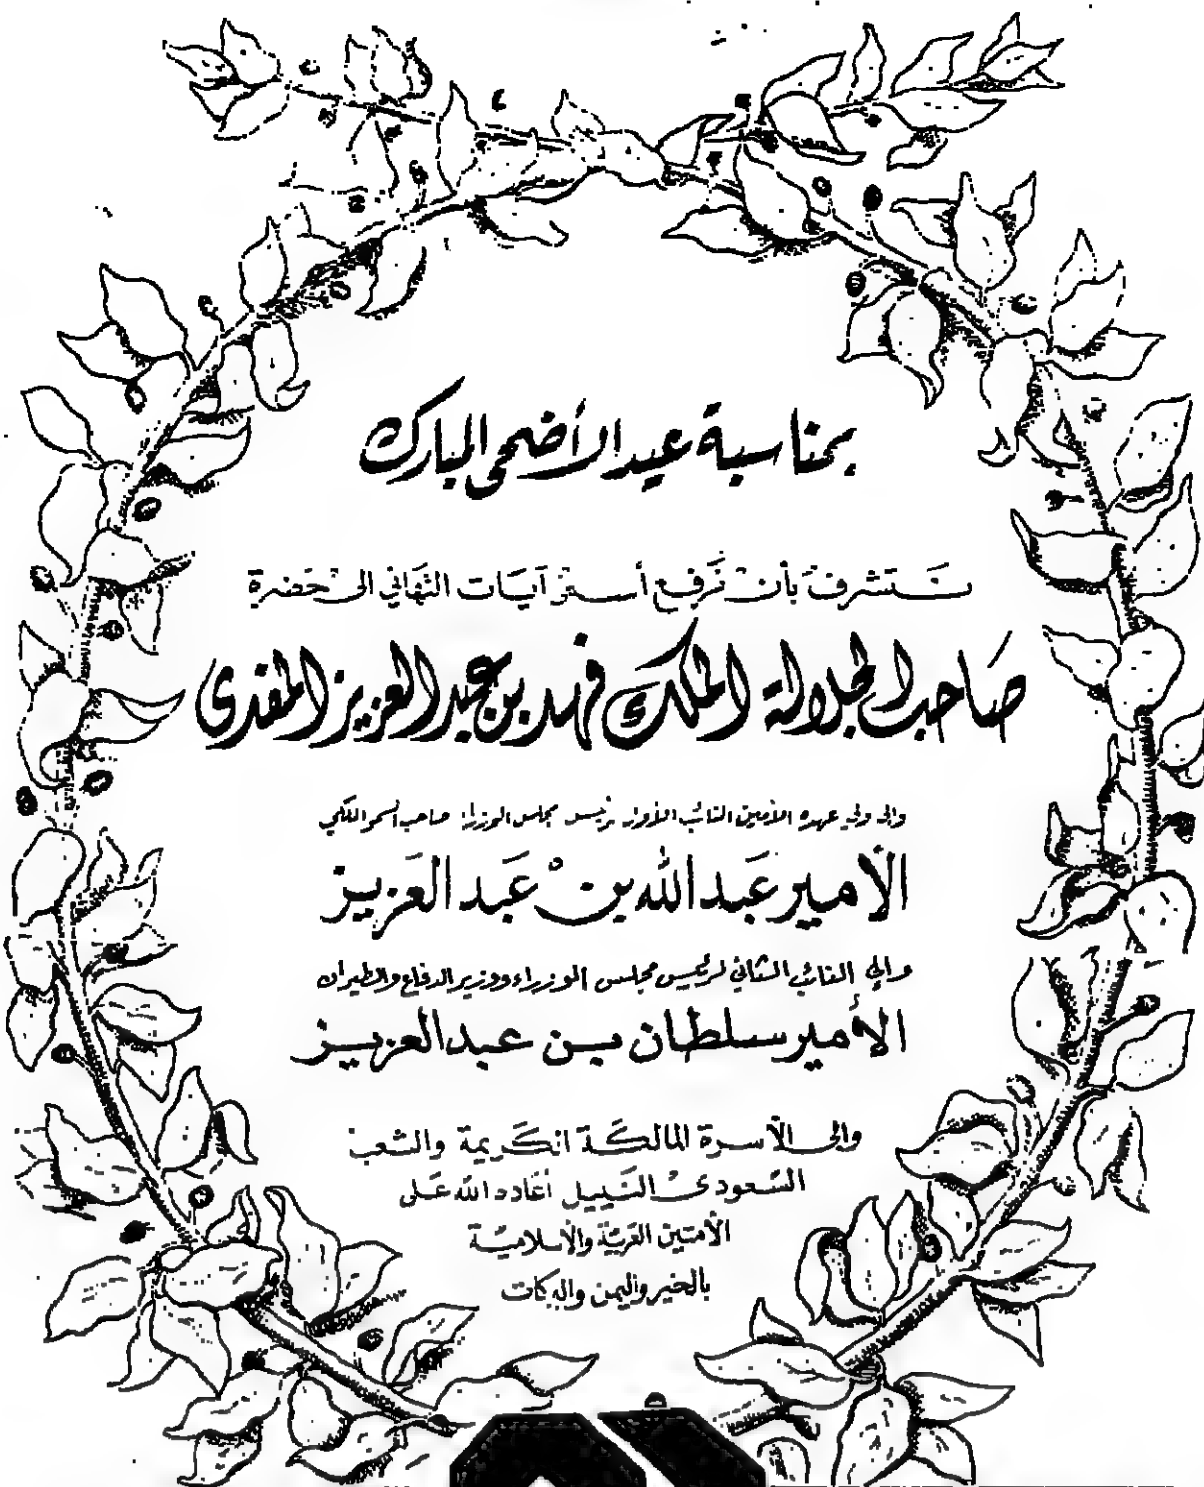 بمناسبة عيد الأضحى المبارك
نتشرف بأن نرفع أسمى آيات التهاني الى حضرة
صاحب الجلالة الملك فهد بن عبد العزيز المفدى
والى ولي عهده الأمين النائب الأول لرئيس مجلس الوزراء صاحب السمو الملكي
الأمير عبد الله بن عبد العزيز
والى النائب الثاني لرئيس مجلس الوزراء ووزير الدفاع والطيران
الأمير سلطان بن عبد العزيز
والى الأسرة المالكة الكريمة والشعب
السعودي النبيل أعاده الله على
الأمتين العربية والاسلامية
بالخير واليمن والبركات